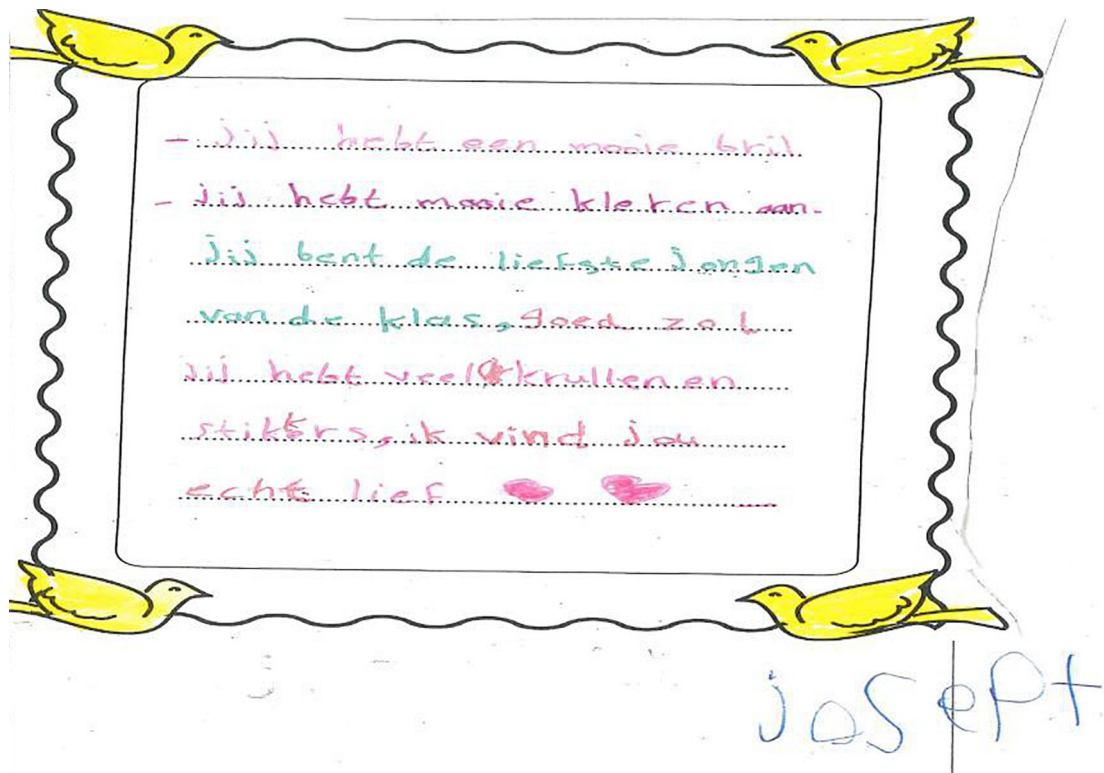 - jij hebt een mooie bril
- jij hebt mooie kleren aan.
jij bent de liefste jongen
van de klas, goed zo!
jij hebt veel krullen en
stikkers, ik vind jou
echt lief
josept